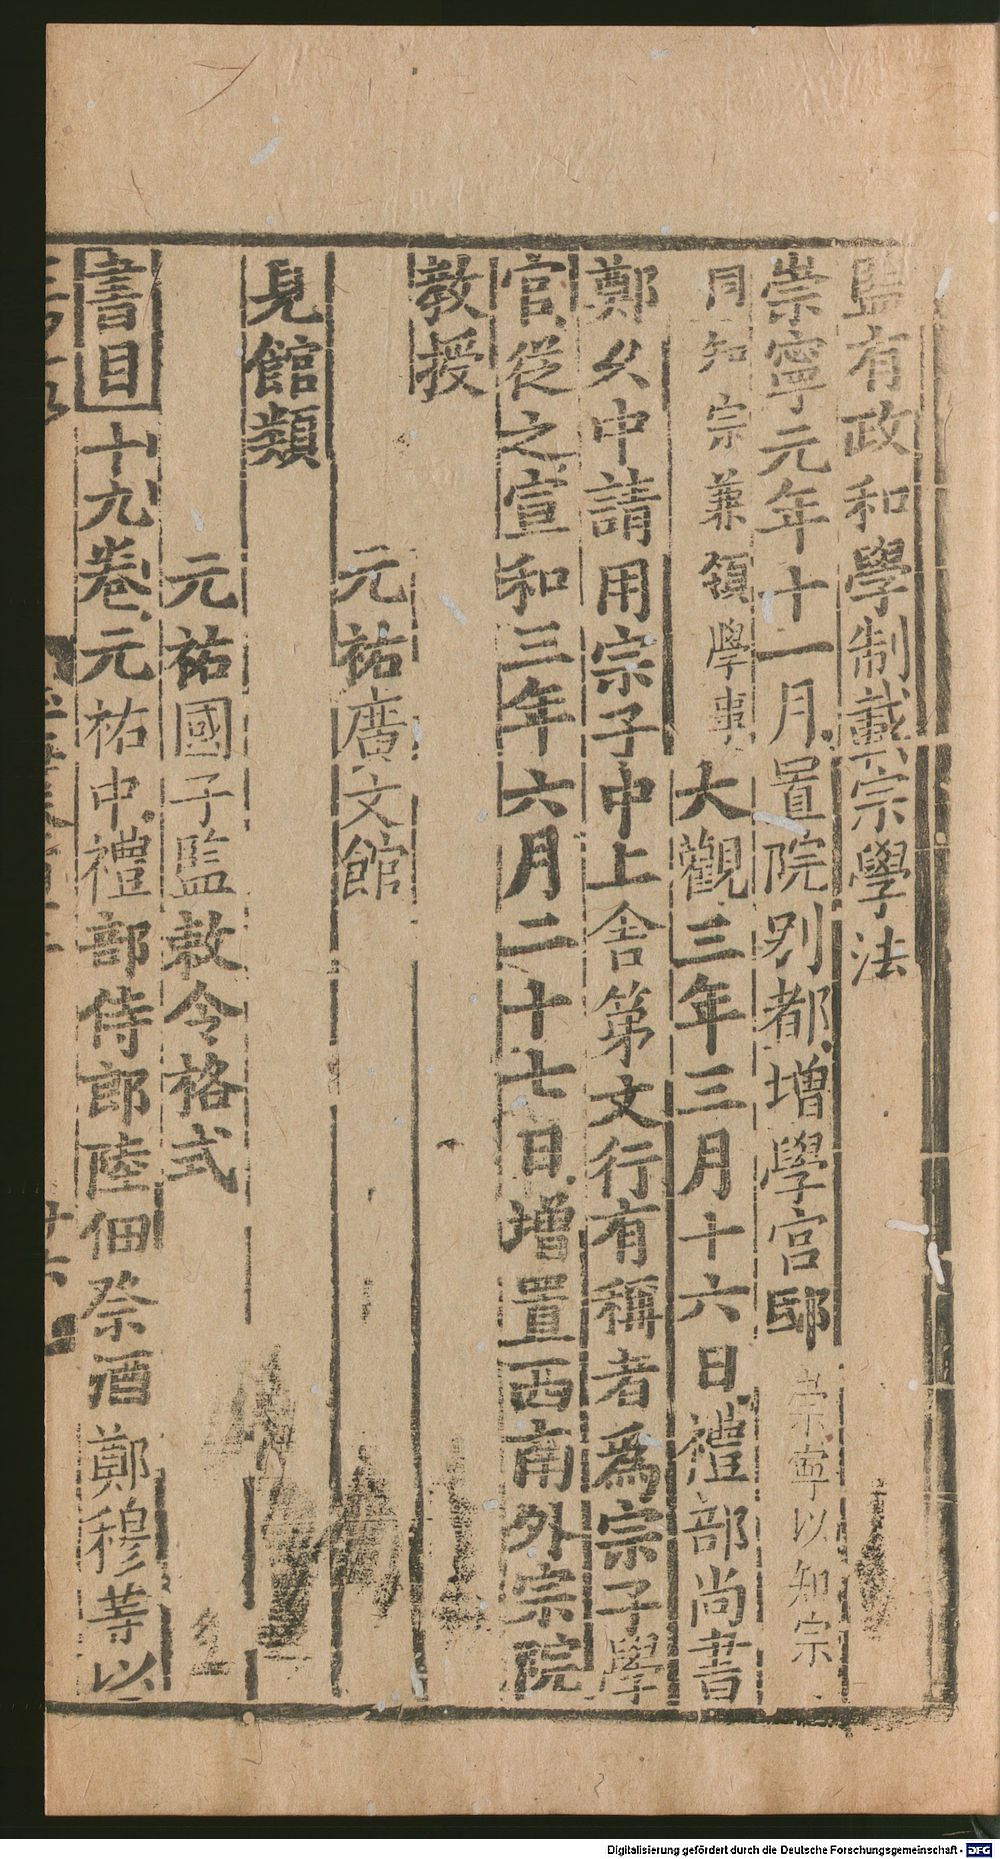 監有政和學制載宗學法
崇寧元年十一月置院別都增學宮邸崇寧以知宗
同知宗兼領學事大觀三年三月十六日禮部尚書
鄭久中請用宗子中上舍第文行有稱者爲宗子學
官從之宣和三年六月二十七日增置西南外宗院
教授
元祐廣文館
見館類
元祐國子監敕令格式
書目十九卷元祐中禮部侍郎陸佃祭酒鄭穆等以
Digitalisierung gefördert durch die Deutsche Forschungsgemeinschaft - DFG